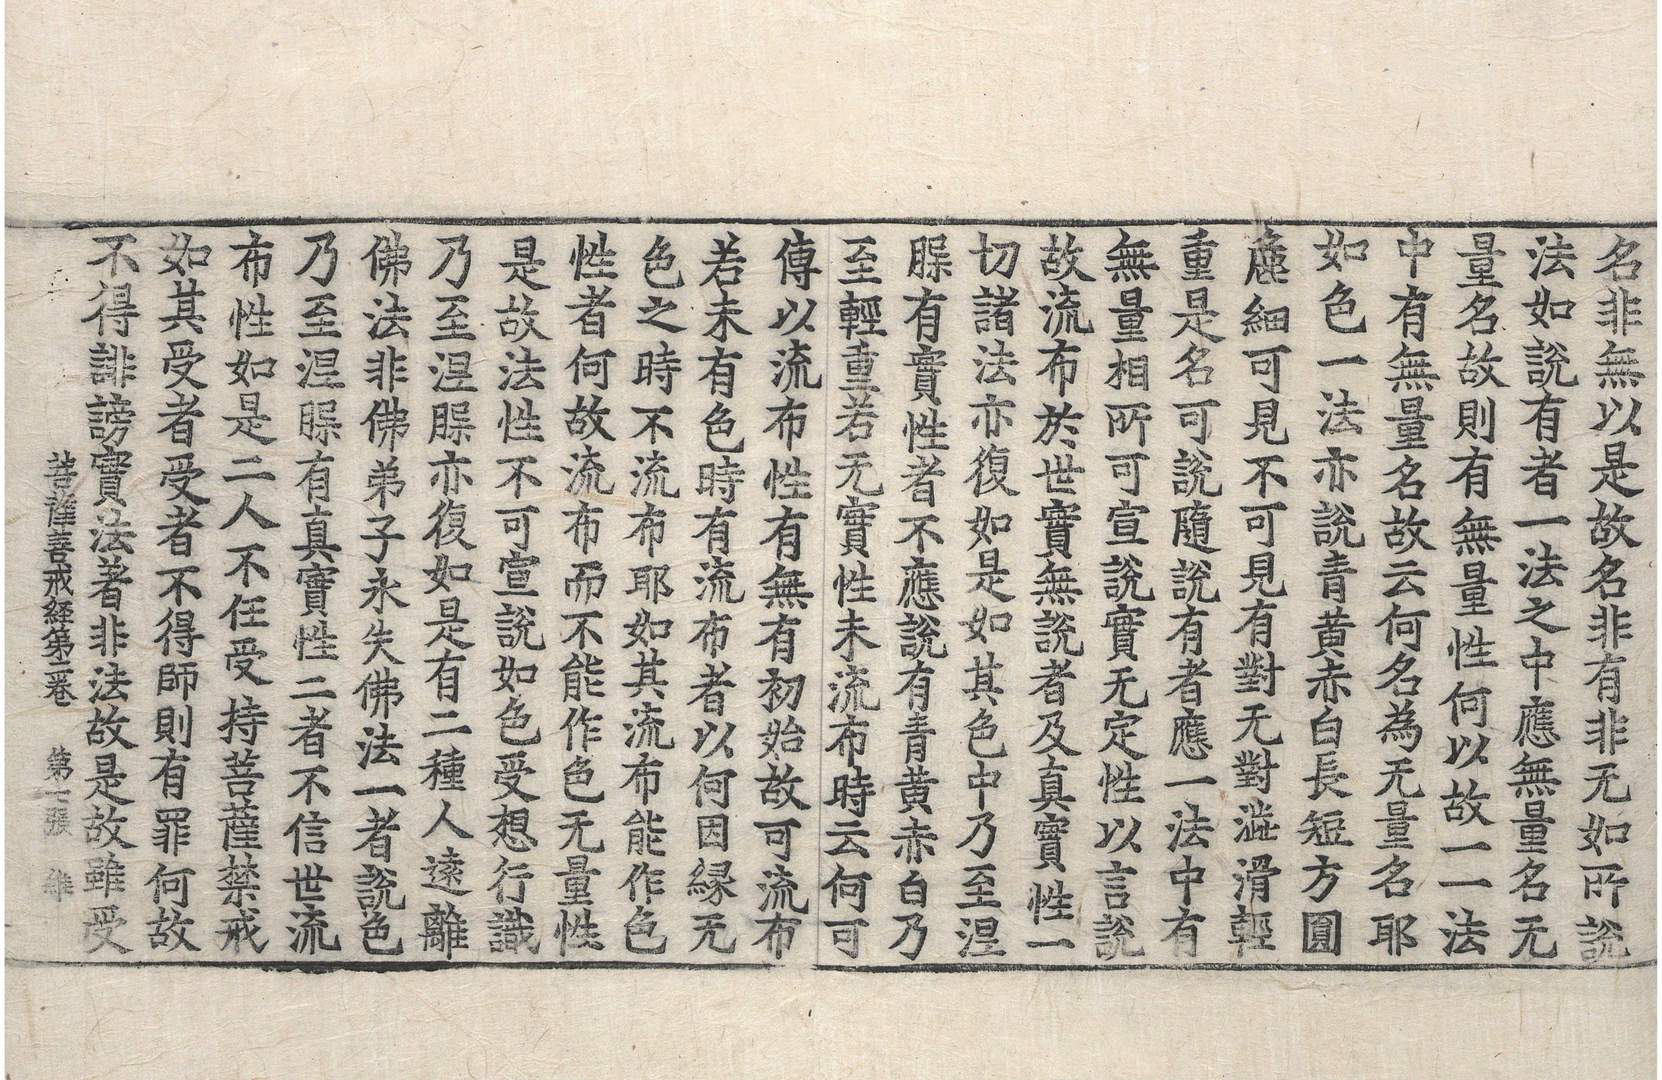 名非無以是故名非有非无如所說
法如說有者一法之中應無量名无
量名故則有無量性何以故一一法
中有無量名故云何名為无量名耶
如色一法亦說青黃赤白長短方圓
麁細可見不可見有對无對澁滑輕
重是名可說隨說有者應一法中有
無量相所可宣說實无定性以言說
故流布於世實無說者及真實性一
切諸法亦復如是如其色中乃至涅
槃有實性者不應說有青黃赤白乃
至輕重若无實性未流布時云何可
傳以流布性有無有初始故可流布
若未有色時有流布者以何因緣无
色之時不流布耶如其流布能作色
性者何故流布而不能作色无量性
是故法性不可宣說如色受想行識
乃至涅槃亦復如是有二種人遠離
佛法非佛弟子永失佛法一者說色
乃至涅槃有真實性二者不信世流
布性如是二人不任受持菩薩禁戒
如其受者受者不得師則有罪何故
不得誹謗實法著非法故是故雖受
菩薩善戒經第二卷 第七張 維